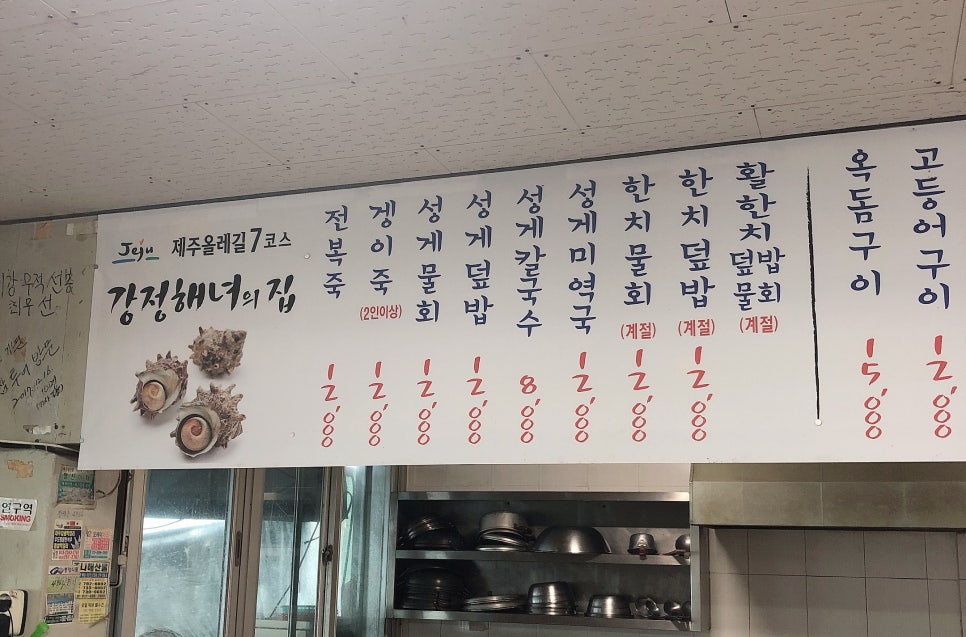 Jeju 제주올레길 7코스
강정해녀의 집
전복죽
12,000
겡이죽
(2인이상)
12,000
성게물회
12,000
성게덮밥
12,000
성게칼국수
8,000
성게미역국
12,000
한치물회
(계절)
12,000
한치덮밥
(계절)
12,000
활한치덮밥물회
(계절)
옥돔구이
15,000
고등어구이
12,000
최우선
2017.12.16
SMOKING